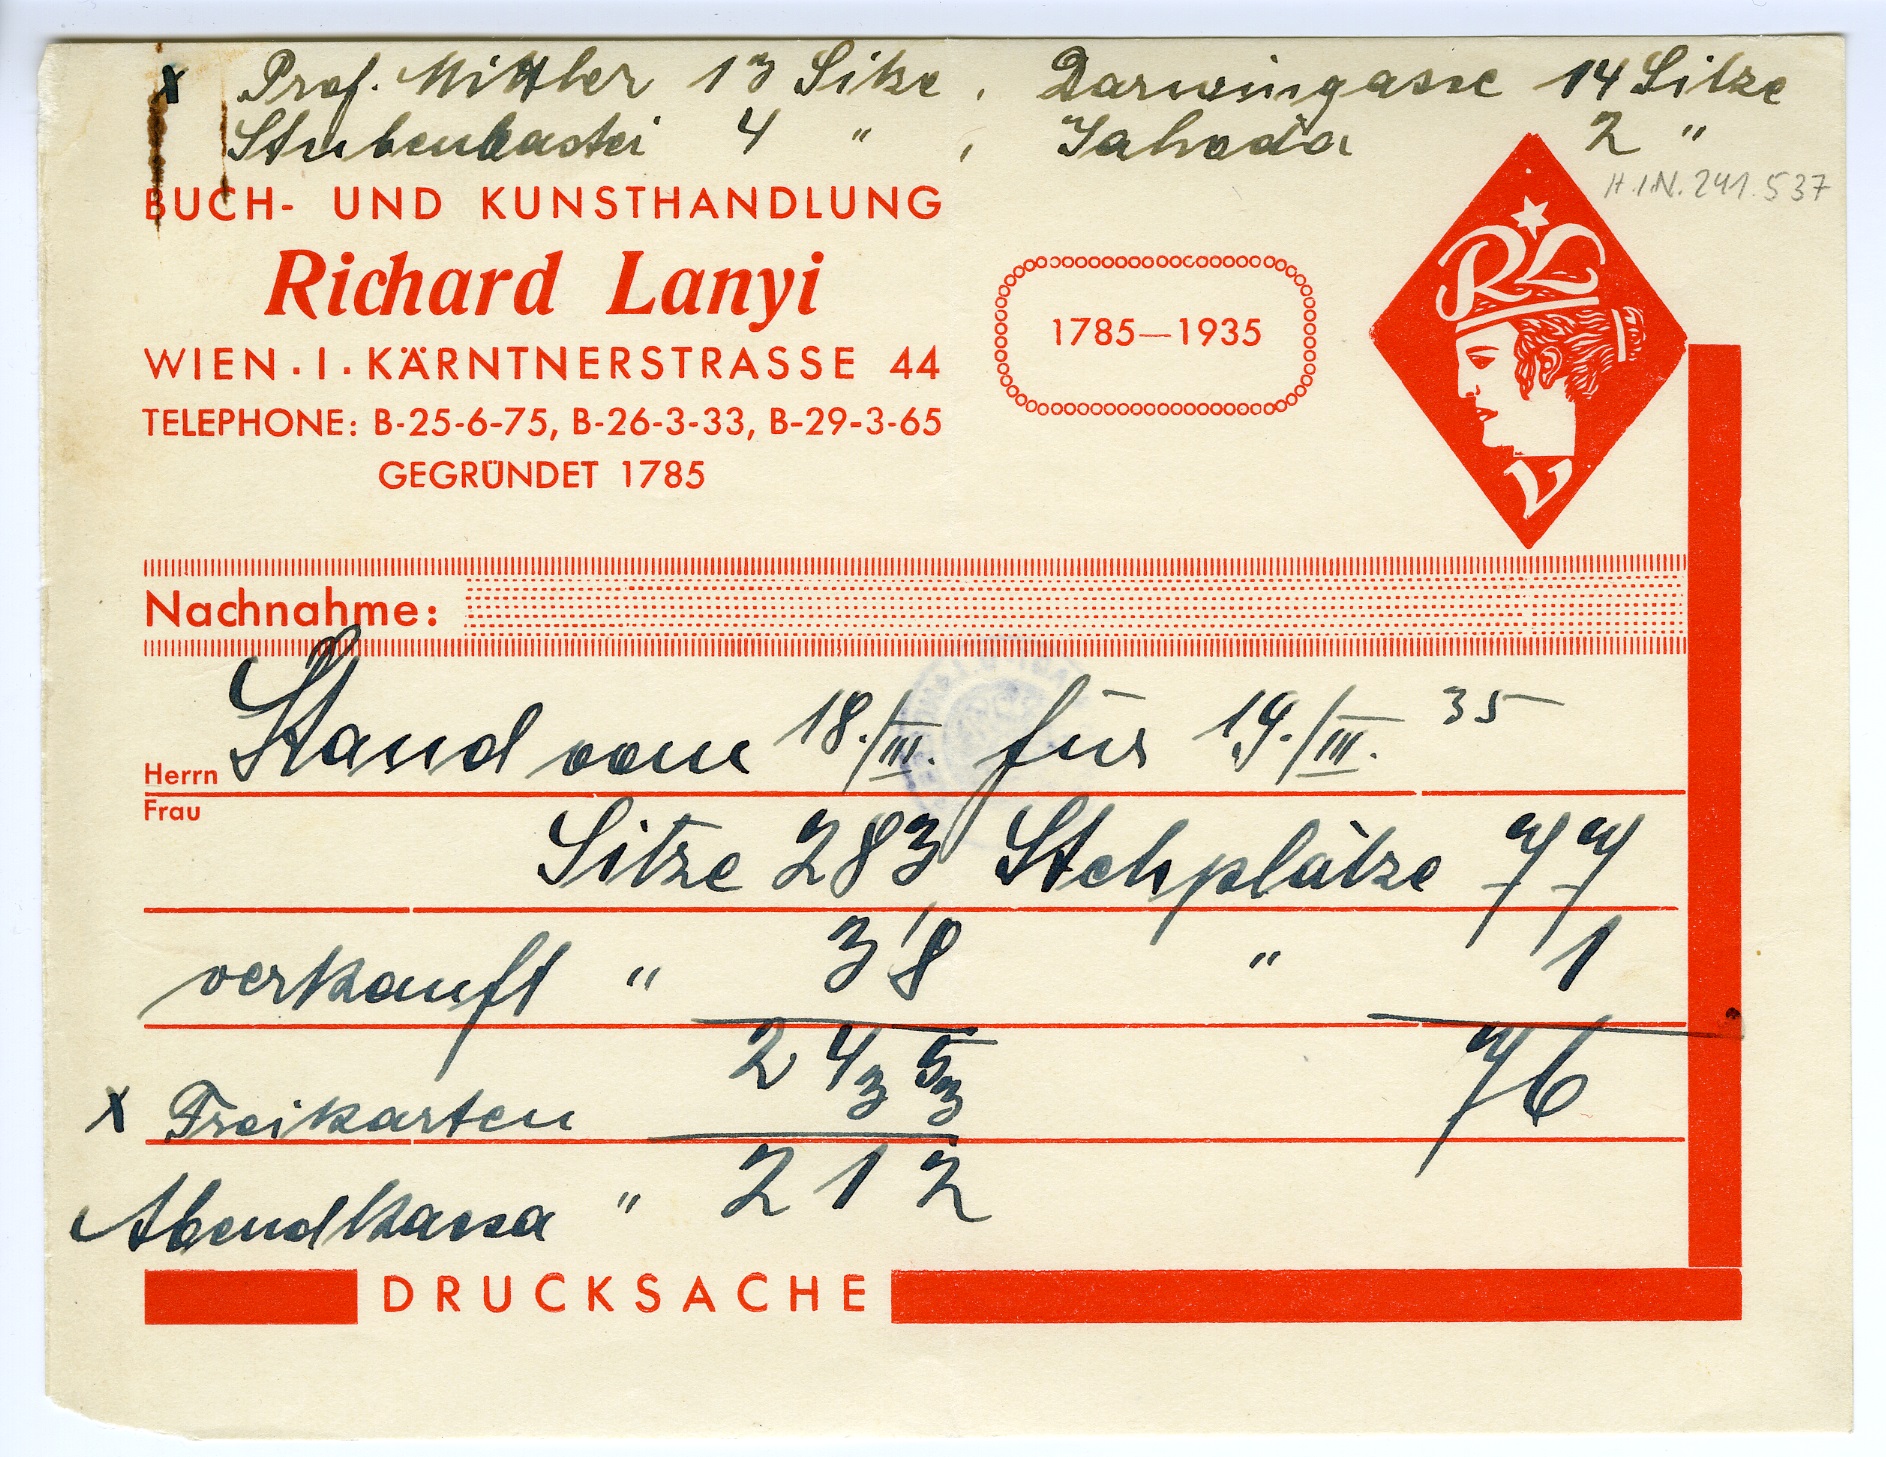 x Prof. Mittler 13 Sitze, Darwingasse 14 Sitze
Stubenbastei 4 " , Jahoda 2 "
H.I.N. 241.537
BUCH- UND KUNSTHANDLUNG
Richard Lanyi
WIEN · I · KÄRNTNERSTRASSE 44
TELEPHONE: B-25-6-75, B-26-3-33, B-29-3-65
GEGRÜNDET 1785
1785—1935
RL
V
Nachnahme:
Stand vom 18./III. für 19./III. 35
Herrn
Frau
Sitze 283 Stehplätze 77
verkauft " 38 " 1
245 76
x Freikarten 33
Abendkassa " 212
DRUCKSACHE